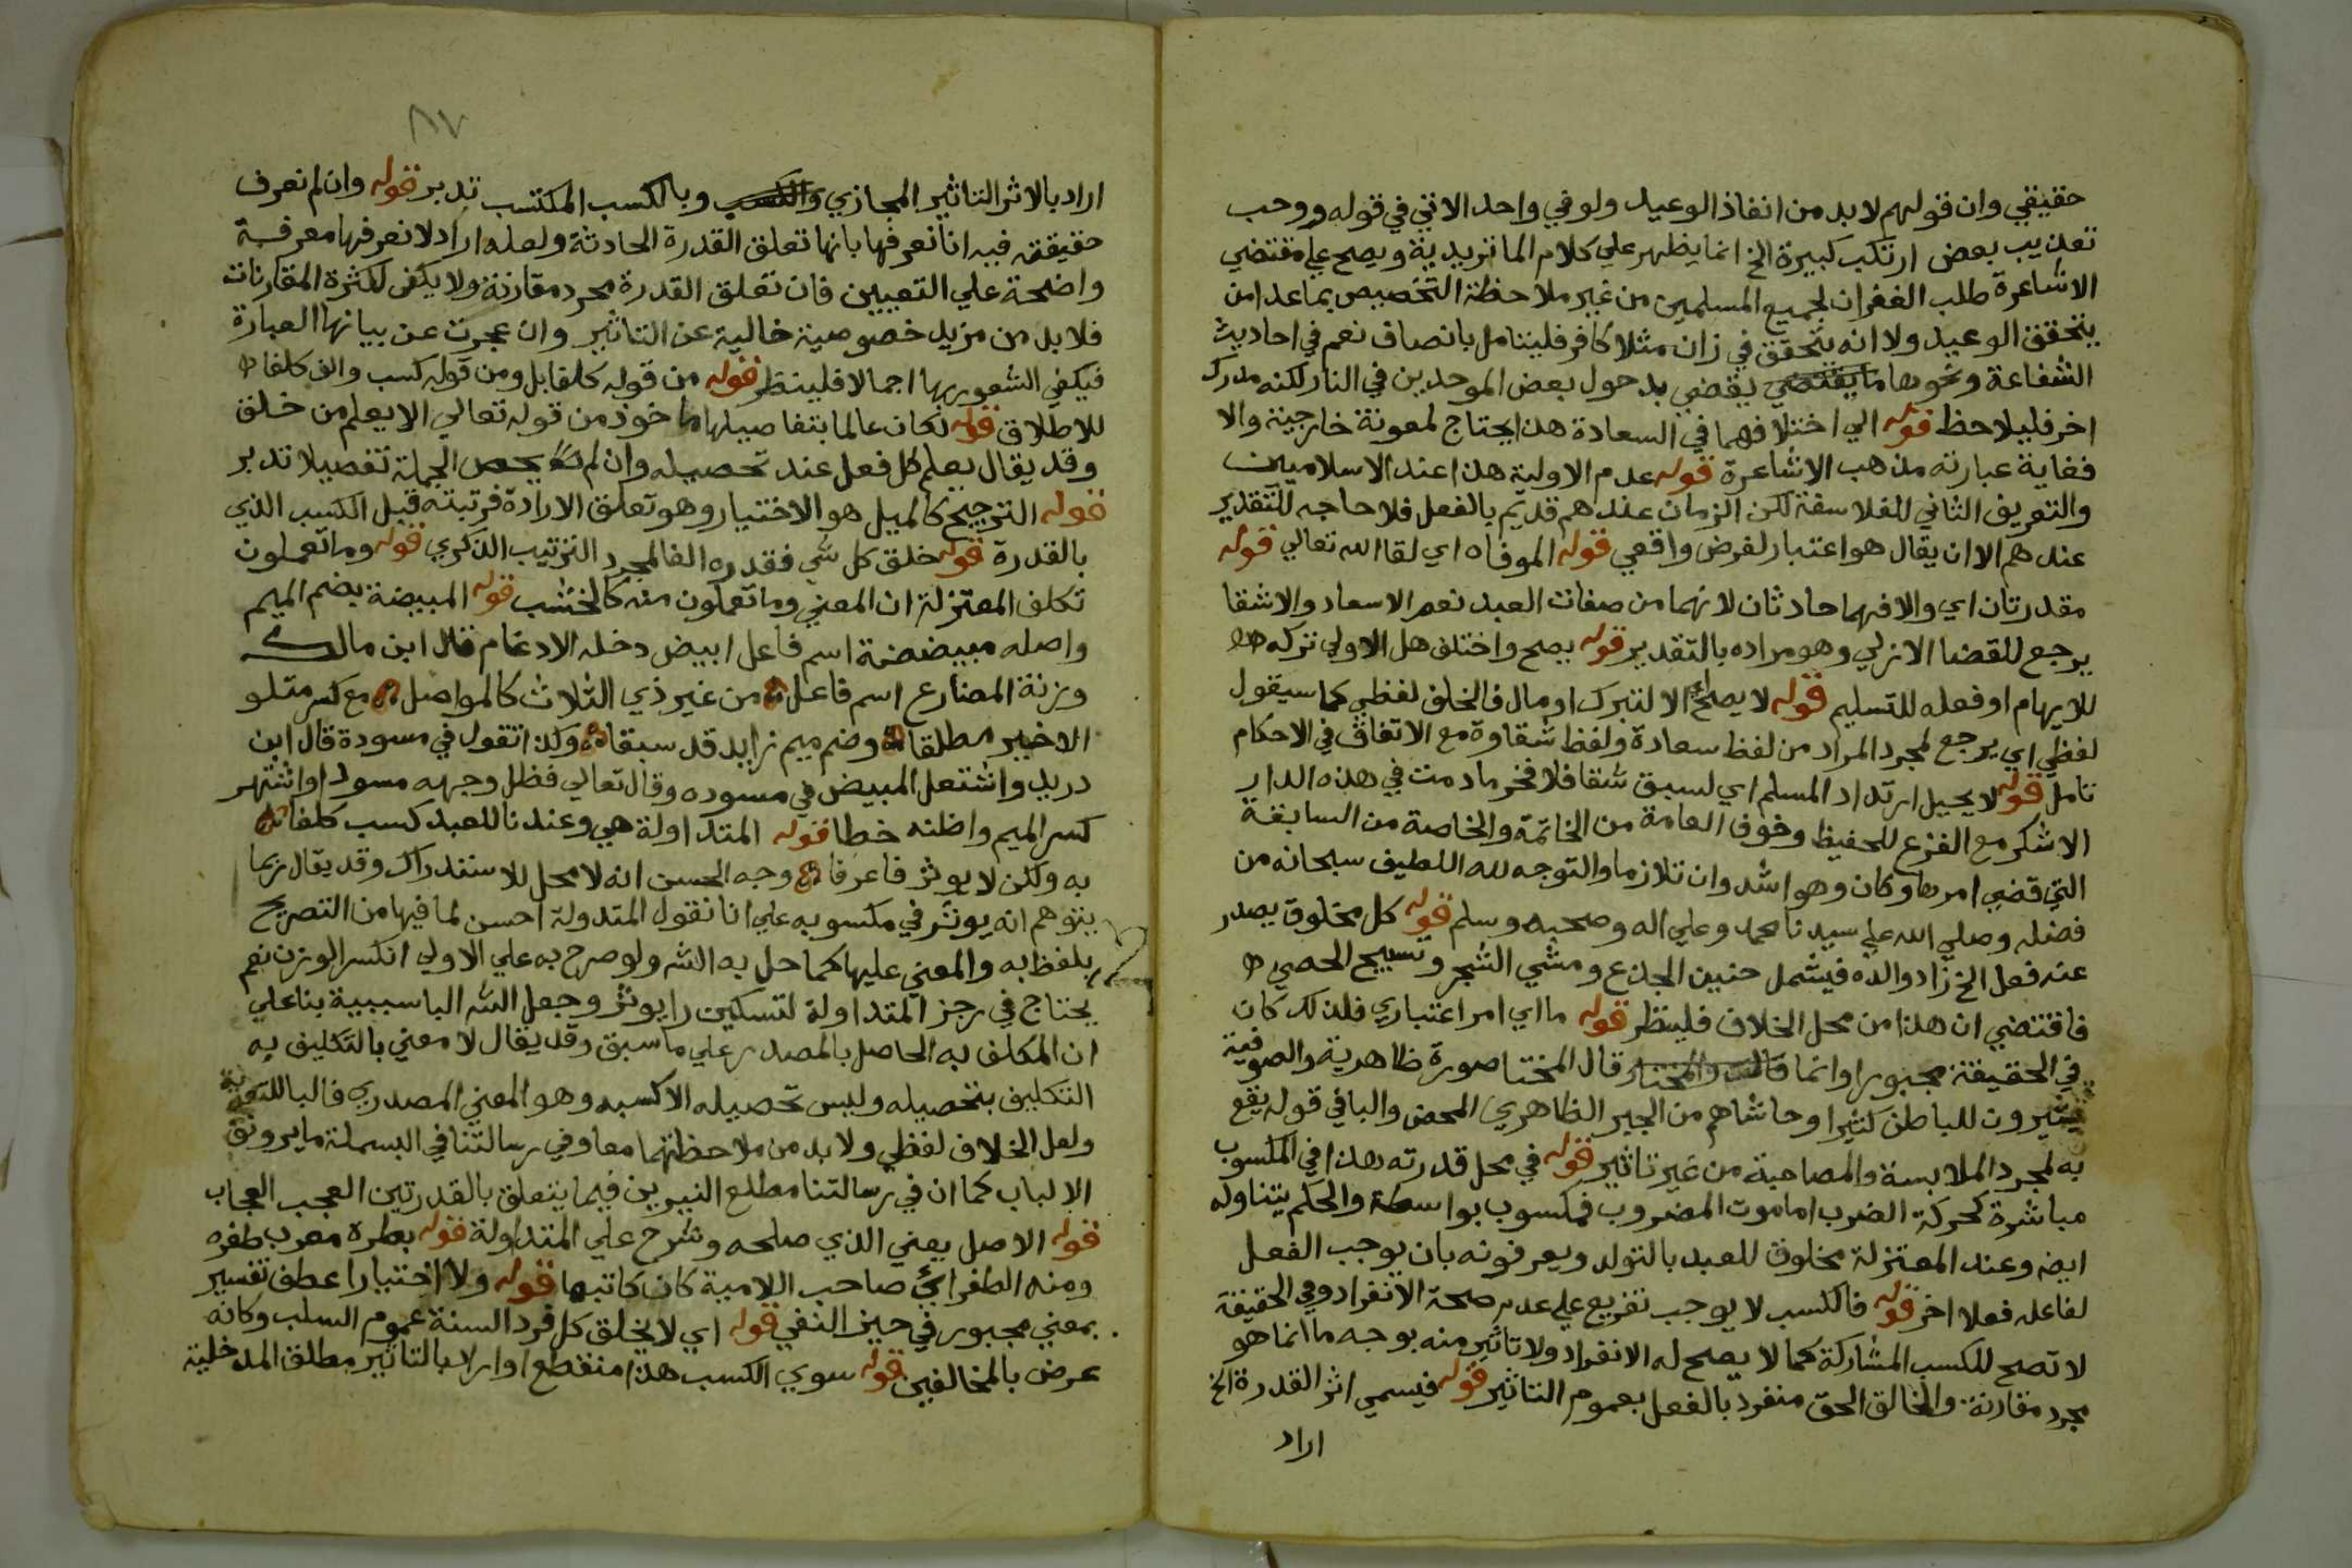 حقيقي وان قولهم لابد من انفاذ الوعيد ولو في واحد الاتي في قوله ووحب
تعذيب بعض ارتكب كبيرة الخ انما يظهر علي كلام الماتريدية ويصح علي مقتضي
الاشاعرة طلب الغفران لجميع المسلمين من غير ملاحظة التخصيص بماعدا من
يتحقق الوعيد ولا انه يتحقق في زان مثلا كافر فليتامل بانصاف نعم في احاديث
الشفاعة ونحوها ما يقتضي يقضي بدحول بعض الموحدين في النار لكنه مدرك
اخر فليلاحظ قوله الي اختلافهما في السعادة هذا يحتاج لمعونة خارجية والا
فغاية عبارته مذهب الاشاعرة قوله عدم الاولية هذا عند الاسلاميين
والتعريف الثاني للفلاسفة لكن الزمان عندهم قديم بالفعل فلا حاجه للتقدير
عندهم الا ان يقال هو اعتبار لفرض واقعي قوله الموفاه اي لقا الله تعالي قوله
مقدرتان اي والا فهما حادثان لانهما من صفات العبد نعم الاسعاد والاشقا
يرجع للقضا الازلي وهو مراده بالتقدير قوله يصح واختلف هل الاولي تركه
للايهام او فعله للتسليم قوله لا يصح اي الا لتبرك او مال فالخلف لفظي كما سيقول
لفظي اي يرجع لمجرد المراد من لفظ سعادة ولفظ شقاوة مع الاتفاق في الاحكام
تامل قوله لا يحيل ارتداد المسلم اي لسبق شقا فلا فخر مادمت في هذه الدار
الا شكر مع الفزع للحفيظ وخوف العامة من الخاتمة والخاصة من السابقة
التي قضي امرها وكان وهو اشد وان تلازما والتوجه لله اللطيف سبحانه من
فضله وصلي الله علي سيدنا محمد وعلي اله وصحبه وسلم قوله كل مخلوق يصدر
عنه فعل الخ زاد والده فيشمل حنين الجذع ومشي الشجر وتسبيح الحصي
فاقتضي ان هذا من محل الخلاف فلينظر قوله ما اي امر اعتباري فلذلك كان
في الحقيقة مجبورا وانما قال المختا صورة ظاهرية والصوفية
يشيرون للباطن كثيرا وحاشاهم من الجبر الظاهري المحض والبا في قوله يقع
به لمجرد الملابسة والمصاحبة من غير تاثير قوله في محل قدرته هذا في المكسوب
مباشرة كحركة الضرب اما موت المضروب فمكسوب بواسطة والحكم يتناوله
ايضه وعند المعتزلة مخلوق للعبد بالتولد ويعرفونه بان يوجب الفعل
لفاعله فعلا اخر قوله فالكسب لا يوجب تفريع علي عدم صحة الانفراد وفي الحقيقة
لا تصح للكسب المشاركة كما لا يصح له الانفراد ولا تاثير منه بوجه ما انما هو
مجرد مقارنة والخالق الحق منفرد بالفعل بعموم التاثير قوله فيسمي اثر القدرة الخ
اراد
٨٧
اراد بالاثر التاثير المجازي والكسب وبالكسب المكتسب تدبر قوله وان لم نعرف
حقيقته فيه انا نعرفها بانها تعلق القدرة الحادثة ولعله اراد لا نعرفها معرفة
واضحة علي التعيين فان تعلق القدرة مجرد مقارنة ولا يكفي لكثرة المقارنات
فلابد من مزيد خصوصية خالية عن التاثير وان عجزت عن بيانها العبارة
فيكفي الشعور بها اجمالا فلينظر قوله من قوله كلفا بل ومن قوله كسب والف كلفا
للاطلاق قوله لكان عالما بتفاصيلها ماخوذ من قوله تعالي الا يعلم من خلق
وقد يقال يعلم كل فعل عند تحصيله وان لم يحص الجملة تفصيلا تدبر
قوله الترجيح كالميل هو الاختيار وهو تعلق الارادة فرتبته قبل الكسب الذي
بالقدرة قوله خلق كل شي فقدره الفا لمجرد الترتيب الذكري قوله وما تعملون
تكلف المعتزلة ان المعني وما تعملون منه كالخشب قوله المبيضة بضم الميم
واصله مبيضضة اسم فاعل ابيض دخله الادغام قال ابن مالك
وزنة المضارع اسم فاعل من غير ذي الثلاث كالمواصل مع كسر متلو
الاخير مطلقا وضم ميم زايد قد سبقا وكذا تقول في مسودة قال ابن
دريد واشتعل المبيض في مسوده وقال تعالي فظل وجهه مسودا واشتهر
كسر الميم واظنه خطا قوله المتداولة هي وعندنا للعبد كسب كلفا
به ولكن لا يوثر فاعرفا وجه الحسن انه لا محل للاستدراك وقد يقال ربما
يتوهم انه يوثر في مكسوبه علي انا نقول المتدولة احسن لما فيها من التصريح
بلفظ به والمعني عليها كما حل به الشه ولو صرح به علي الاولي انكسر الوزن نعم
يحتاج في رجز المتداولة لتسكين را يوثر وجعل الشه البا سببية بنا علي
ان المكلف به الحاصل بالمصدر علي ما سبق وقد يقال لا معني بالتكليف به
التكليف بتحصيله وليس تحصيله الا كسبه وهو المعني المصدري فالبا للتعدية
ولعل الخلاف لفظي ولابد من ملاحظتهما معا وفي رسالتنا في البسملة ما يروق
الالباب كما ان في رسالتنا مطلع النيرين فيما يتعلق بالقدرتين العجب العجاب
قوله الاصل يعني الذي صلحه وشرح علي المتداولة قوله بطره معرب طغره
ومنه الطغرائي صاحب اللامية كان كاتبها قوله ولا اختيارا عطف تفسير
بمعني مجبور في حيز النفي قوله اي لا يخلق كل فرد السنة عموم السلب وكانه
عرض بالمخالفين قوله سوي الكسب هذا منقطع او اراد بالتاثير مطلق المدخلية